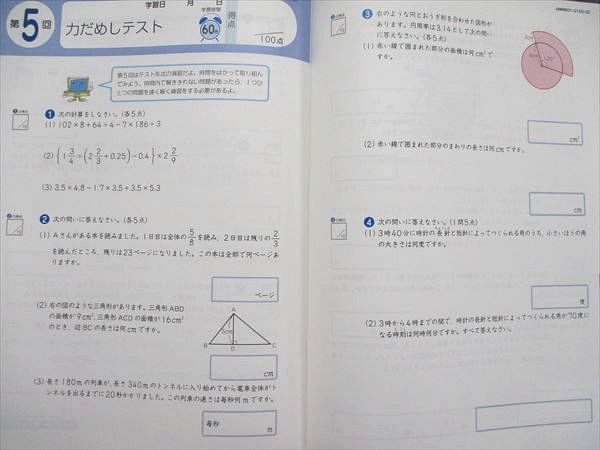 第5回
力だめしテスト
学習日 月 日
学習時間
60分
得点
100点
第5回はテスト形式の演習だよ。時間をはかって取り組ん
でみよう。時間内で解ききれない問題があったら、1つひ
とつの問題を速く解く練習をする必要があるよ。
1 次の計算をしなさい。(各5点)
(1) 102×8+64÷4-7×186÷3
(2) {1 3/4÷(2 2/3+0.25)-0.4}×2 2/9
(3) 3.5×4.8-1.7×3.5+3.5×5.3
2 次の問いに答えなさい。(各5点)
(1) Aさんがある本を読みました。1日目は全体の5/8を読み、2日目は残りの2/3
を読んだところ、残りは23ページになりました。この本は全部で何ページあ
りますか。
ページ
(2) 右の図のような三角形があります。三角形ABD
の面積が9cm²、三角形ACDの面積が16cm²
のとき、辺BCの長さは何cmですか。
A
5cm
B
D
C
cm
(3) 長さ180mの列車が、長さ340mのトンネルに入り始めてから電車全体がト
ンネルを出るまでに20秒かかりました。この列車の速さは毎秒何mですか。
毎秒
m
3 右のような円とおうぎ形を合わせた図形が
あります。円周率は3.14として次の問い
に答えなさい。(各5点)
(1) 赤い線で囲まれた部分の面積は何cm²で
すか。
120°
cm²
(2) 赤い線で囲まれた部分のまわりの長さは何cmですか。
cm
4 次の問いに答えなさい。(1問5点)
(1) 3時40分に時計の長針と短針によってつくられる角のうち、小さいほうの角
の大きさは何度ですか。
度
(2) 3時から4時までの間で、時計の長針と短針によってつくられる角が70度に
なる時刻は何時何分ですか。すべて答えなさい。